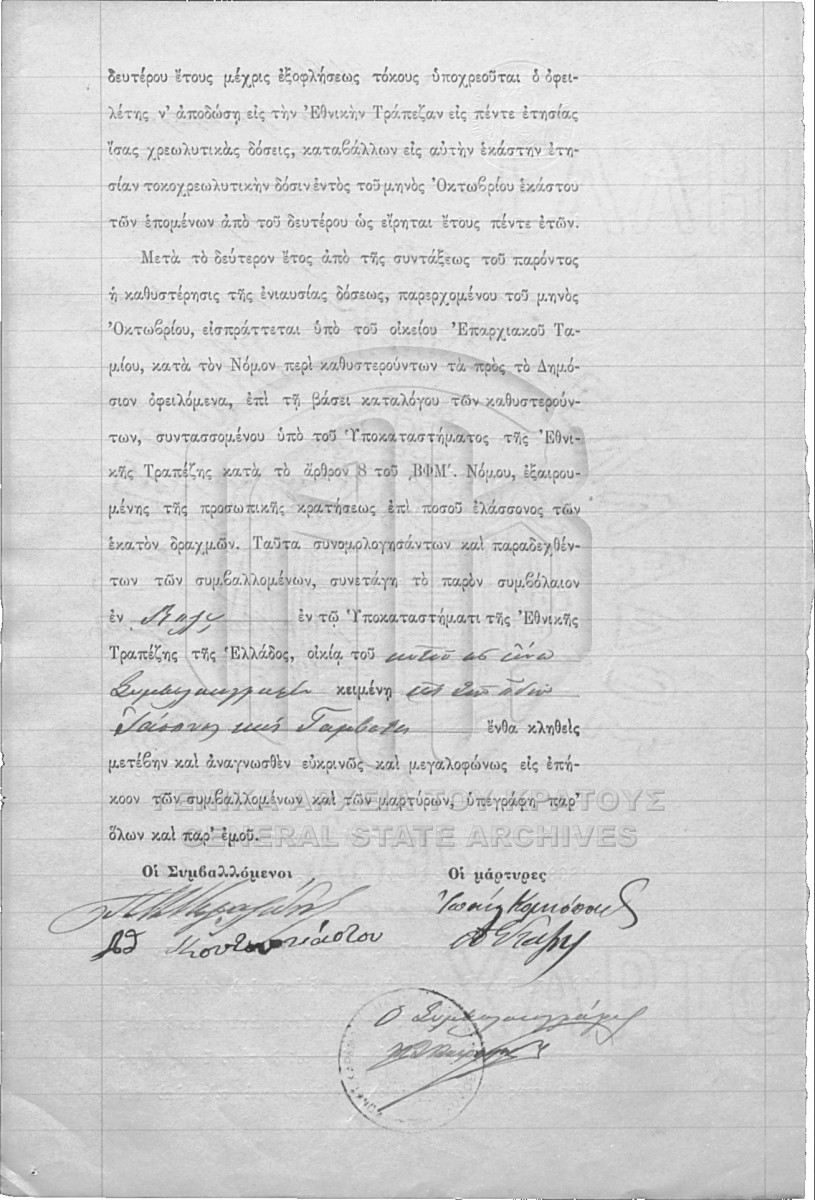 δευτέρου ἔτους μέχρις ἐξοφλήσεως τόκους ὑποχρεοῦται ὁ ὀφει-
λέτης ν' ἀποδώσῃ εἰς τὴν Ἐθνικὴν Τράπεζαν εἰς πέντε ἐτησίας
ἴσας χρεωλυτικὰς δόσεις, καταβάλλων εἰς αὐτὴν ἑκάστην ἐτη-
σίαν τοκοχρεωλυτικὴν δόσιν ἐντὸς τοῦ μηνὸς Ὀκτωβρίου ἑκάστου
τῶν ἑπομένων ἀπὸ τοῦ δευτέρου ὡς εἴρηται ἔτους πέντε ἐτῶν.
Μετὰ τὸ δεύτερον ἔτος ἀπὸ τῆς συντάξεως τοῦ παρόντος
ἡ καθυστέρησις τῆς ἐνιαυσίας δόσεως, παρερχομένου τοῦ μηνὸς
Ὀκτωβρίου, εἰσπράττεται ὑπὸ τοῦ οἰκείου Ἐπαρχιακοῦ Τα-
μίου, κατὰ τὸν Νόμον περὶ καθυστερούντων τὰ πρὸς τὸ Δημό-
σιον ὀφειλόμενα, ἐπὶ τῇ βάσει καταλόγου τῶν καθυστερούν-
των, συντασσομένου ὑπὸ τοῦ Ὑποκαταστήματος τῆς Ἐθνι-
κῆς Τραπέζης κατὰ τὸ ἄρθρον 8 τοῦ ͵ΒΦΜ΄. Νόμου, ἐξαιρου-
μένης τῆς προσωπικῆς κρατήσεως ἐπὶ ποσοῦ ἐλάσσονος τῶν
ἑκατὸν δραχμῶν. Ταῦτα συνομολογησάντων καὶ παραδεχθέν-
των τῶν συμβαλλομένων, συνετάγη τὸ παρὸν συμβόλαιον
ἐν ἐν τῷ Ὑποκαταστήματι τῆς Ἐθνικῆς
Τραπέζης τῆς Ἑλλάδος, οἰκίᾳ τοῦ
Συμβολαιογραφεῖον κειμένῃ
ἔνθα κληθεὶς
μετέβην καὶ ἀναγνωσθὲν εὐκρινῶς καὶ μεγαλοφώνως εἰς ἐπή-
κοον τῶν συμβαλλομένων καὶ τῶν μαρτύρων, ὑπεγράφη παρ'
ὅλων καὶ παρ' ἐμοῦ.
ΓΕΝΙΚΑ ΑΡΧΕΙΑ ΤΟΥ ΚΡΑΤΟΥΣ
GENERAL STATE ARCHIVES
Οἱ Συμβαλλόμενοι Οἱ μάρτυρες
Ὁ Συμβολαιογράφος